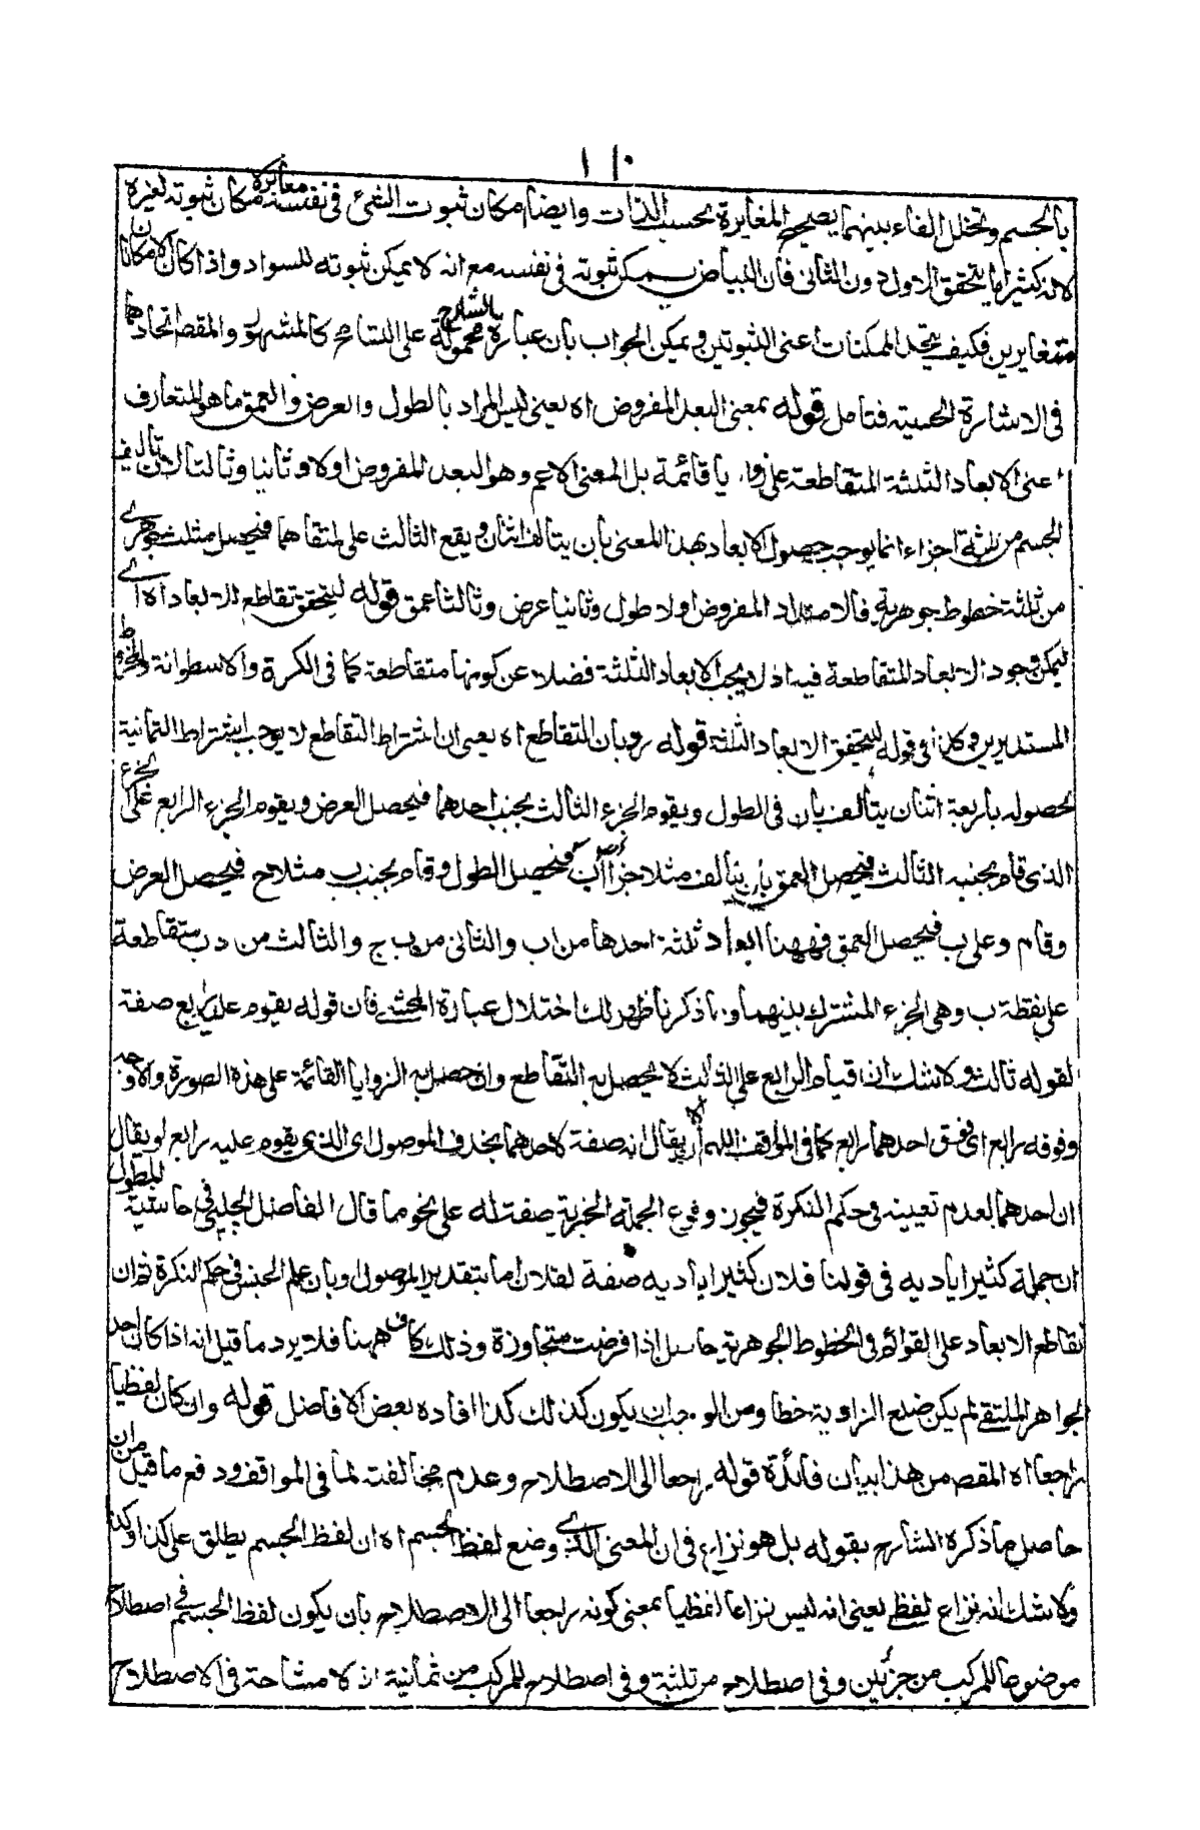 ١١٠
بالجسم وتخلل الفاء بينهما يصحح المغايرة بحسب الذات وايضا مكان ثبوت الشئ فى نفسه مغايرة مكان ثبوته لغيره
لانه كثيرا ما يتحقق الاول دون الثانى فان البياض يمكن ثبوته فى نفسه مع انه لا يمكن ثبوته للسواد واذا كان الامكانان
متغايرين فكيف يتحد الممكنات اعنى الثبوتين ويمكن الجواب بان عبارة الشارح محمولة على التسامح كما المشهور والمقصد اتحادهما
فى الاشارة الحسية فتامل قوله بمعنى البعد المفروض اه يعنى ليس المراد بالطول والعرض والعمق ما هو المتعارف
اعنى الابعاد الثلثة المتقاطعة على زوايا قائمة بل المعنى الاعم وهو البعد المفروض اولا وثانيا وثالثا لان تاليف
الجسم من ثلثة اجزاء انما يوجب حصول الابعاد بهذا المعنى بان يتالف اثنان ويقع الثالث على ملتقاهما فيحصل مثلث جوهرى
من ثلثة خطوط جوهرية فالامتداد المفروض اولا طول وثانيا عرض وثالثا عمق قوله ليتحقق تقاطع الابعاد اه اى
ليمكن وجود الابعاد المتقاطعة فيه اذ لا يجب الابعاد الثلثة فضلا عن كونها متقاطعة كما فى الكرة والاسطوانة والمخروط
المستديرين وكذا فى قوله ليتحقق الابعاد الثلثة قوله وبان التقاطع اه يعنى ان اشتراط التقاطع لا يوجب اشتراط الثمانية
لحصوله باربعة اثنان يتالفان فى الطول ويقوم الجزء الثالث بجنب احدهما فيحصل العرض ويقوم الجزء الرابع على الجزء
الذى قام بجنبه الثالث فيحصل العمق بان يتالف مثلا جزأ اب فيحصل الطول وقام بجنب ب مثلا ج فيحصل العرض
وقام د على ب فيحصل العمق فههنا ابعاد ثلثة احدها من اب والثانى من ب ج والثالث من د ب متقاطعة
على نقطة ب وهى الجزء المشترك بينهما وبما ذكرنا ظهر لك اختلال عبارة المحشى فان قوله يقوم عليه رابع صفة
لقوله ثالث ولا شك ان قيام الرابع على الثالث لا يحصل به التقاطع وان حصل به الزوايا القائمة على هذه الصورة والاوجه
وفوقه رابع اى فوق احدهما رابع كما فى المواقف اللهم الا ان يقال انه صفة لاحدهما بحذف الموصول اى الذى يقوم عليه رابع او يقال
ان احدهما لعدم تعيينه فى حكم النكرة فيجوز وقوع الجملة الخبرية صفت له على نحو ما قال الفاضل الچلپى فى حاشية المطول
ان جملة كثيرا اياديه فى قولنا فلان كثيرا اياديه صفة لفلان اما بتقدير الموصول او بان علم الجنس فى حكم النكرة ثم ان
تقاطع الابعاد على القوائم فى الخطوط الجوهرية حاصل اذا فرضت متجاوزة وذلك كاف ههنا فلا يرد ما قيل انه اذا كان احد
الجواهر الملتقى لم يكن ضلع الزاوية خطا ومن الواجب ان يكون كذلك كذا افاده بعض الافاضل قوله وان كان لفظيا
راجعا اه المقصد من هذا بيان فائدة قوله راجعا الى الاصطلاح وعدم مخالفته لما فى المواقف ودفع ما قيل من ان
حاصل ما ذكره الشارح بقوله بل هو نزاع فى ان المعنى الذى وضع لفظ الجسم اه ان لفظ الجسم يطلق على كذا وكذا
ولا شك انه نزاع لفظى يعنى انه ليس نزاعا لفظيا بمعنى كونه راجعا الى الاصطلاح بان يكون لفظ الجسم فى اصطلاح
موضوعا للمركب من جزئين وفى اصطلاح من ثلثة وفى اصطلاح للمركب من ثمانية اذ لا مشاحة فى الاصطلاح